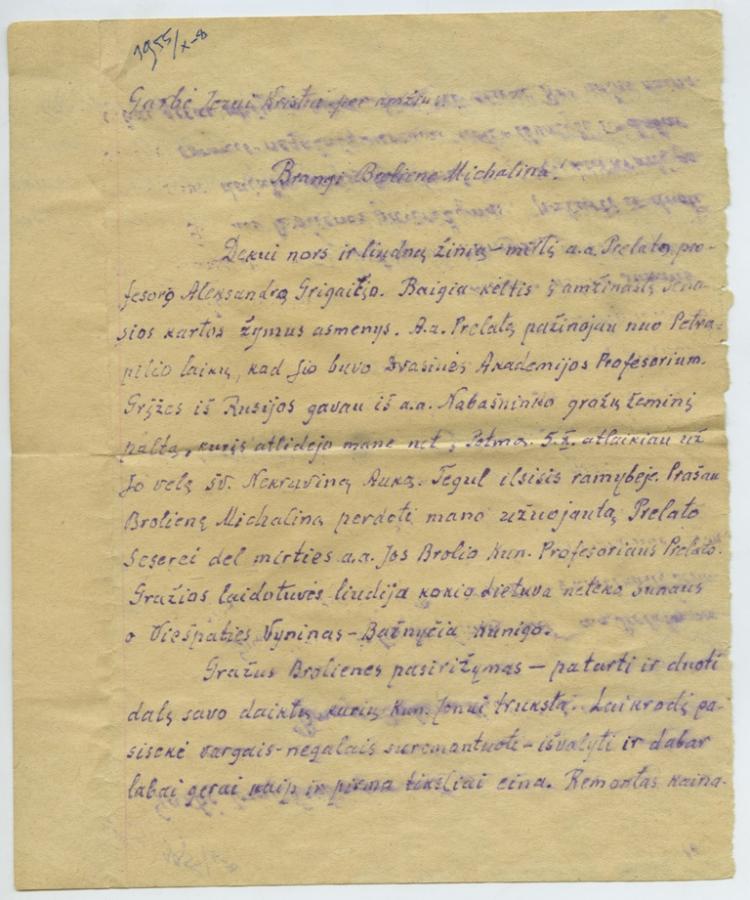 1955/X-8
Garbė Jezui Kristui per amžių
Brangi Broliene Michalina!
Dėkui nors ir liudną žinią - mirtį a.a. Prelato, pro-
fesorą Aleksandrą Grigaitįo. Baigia keltis į amžinastį sena-
sios kartos žymus asmenys. A.a. Prelatą pažinojau nuo Petra-
pilio laikų, kad Jio buvo Dvasinės Akademijos Profesorium.
Grįžęs iš Rusijos gavau iš a.a. Nabašninko gražų žieminį
paltą, kuris atlidėjo mane net į Potmą. 5.X. atlaikiau už
Jo velę šv. Nekruviną Auką. Tegul ilsisis ramybėje. Prašau
Brolienę Michaliną perdoti mano užuojautą Prelato
Seserei del mirties a.a. Jos Brolio Kun. Profesoriaus Prelato.
Gražios laidotuvės liudija kokio Lietuva neteko sunaus
o Viešpaties Vyninas - Bažnyčia kunigo.
Gražus Brolienes pasirižymas - patarti ir duoti
dalą savo daiktų kurių Kun. Jonui trukstą. Laikrodį pa-
sisekė vargais-negalais suremantuoti - išvalyti ir dabar
labai gerai kaip ir pirma tiksliai eina. Remontas kaina-